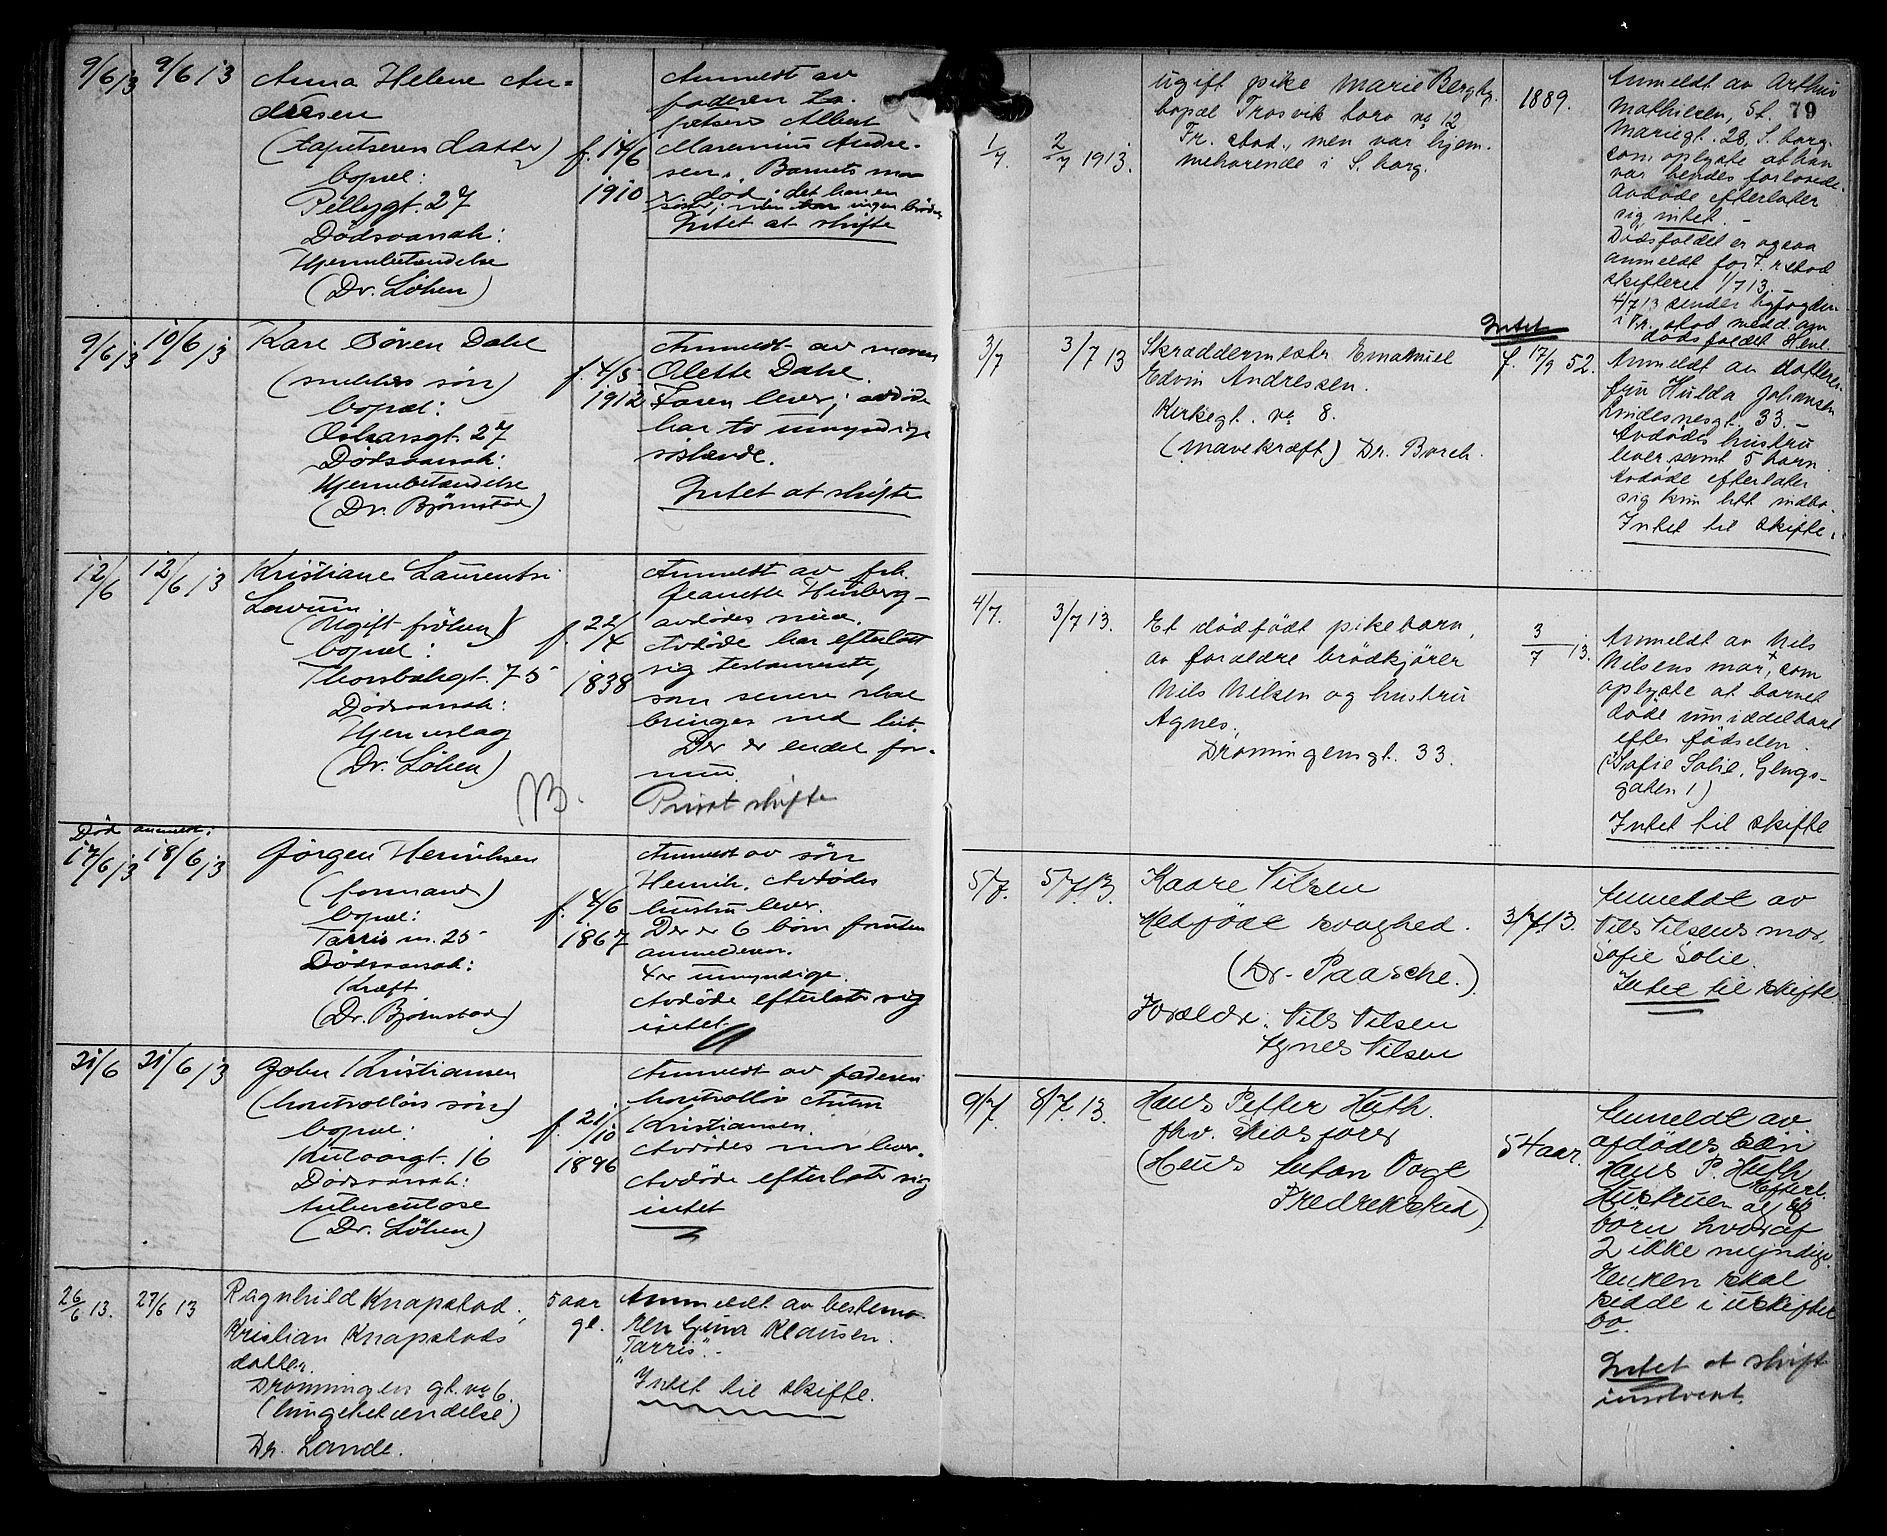 9/6 13 9/6 13 Anna Helene An-
dresen
(tapetserers datter)
bopæl:
Pellygt. 27
Dødsaarsak:
Hjernebetændelse
(Dr. Löken)
f. 14/6
1910
Anmeldt av
faderen ta-
petserer Albert
Marenius Andre-
sen. Barnets mor
er död; det har en
söster, men ingen brödre
Intet at skifte
9/6 13 10/6 13 Kare Søren Dahl
(smeds søn)
bopæl:
Oskarsgt. 27
Dødsaarsak:
Hjernebetændelse
(Dr. Bjørnstad)
f. 4/5
1912
Anmeldt av moren
Olette Dahl.
Faren lever; avdöde
har to umyndige
söskende.
Intet at skifte
12/6 12/6 13 Kristiane Laurentse
(Ugift frøken)
bopæl:
Thorsbakgt. 75
Dødsaarsak:
Hjerneslag
(Dr. Löken)
f. 22/4
1838
Anmeldt av frk.
Jeanette Husberg
avdødes niece.
Avdøde har efterlatt
sig testamente,
som senere skal
bringes ned hit.
Der er endel for-
mue.
Privat skifte
Død anmeldt:
17/6 13 18/6 13 Jörgen Henriksen
(formand)
bopæl:
Tarris n. 25
Dødsaarsak:
Kræft
(Dr. Bjørnstad)
f. 4/6
1867
Anmeldt av søn
Henrik. Avdødes
hustru lever.
Der er 6 børn foruten
anmelderen.
4 er umyndige.
Avdøde efterlater sig
intet.
21/6 21/6 13 John Kristiansen
(kontrollørs søn)
bopæl:
Dødsaarsak:
tuberculose
(Dr. Löken)
f. 21/10
1896
Anmeldt av faderen
kontrollör Anton
Kristiansen.
Avdødes mor lever.
Avdøde efterlater sig
intet
26/6 13. 27/6 13 Ragnhild Knapstad,
Kristian Knapstads
datter.
Dronningens gt. no 6.
(lungebetændelse)
Dr. Lande.
5 aar
gl.
Anmeldt av bestemo-
ren Gina Klausen.
"Tarris".
Intet til skifte.
79
1/7 2/7 1913. ugift pike Marie Bergby.
bopæl Trosvik torv no 12
Fr. stad, men var hjem-
mehørende i S. borg.
1889.
Anmeldt av Arthur
Mathisen, St.
Mariegt. 28, S. borg.
som oplyste at han
var hendes forlovede.
Avdöde efterlater
sig intet. -
Dödsfaldet er ogsaa
anmeldt for Fr.stad
skifteret 1/7 13. -
4/7 13 sender byfogden
i Fr. stad medd. om
dödsfaldet. Henl.
Intet
3/7 3/7 13 Skræddermestr. Emanuel
Edvin Andressen.
Kirkegt. no 8.
(mavekræft) Dr. Borch.
f. 17/9 52.
Anmeldt av datteren
fru Hulda Johansen
Lindesnesgt. 33. -
Avdödes hustru
lever samt 5 barn.
Avdöde efterlater
sig kun litt indbo.
Intet til skifte.
4/7. 3/7 13. Et dödfödt pikebarn,
av foreldre brödkjörer
Nils Nilsen og hustru
Agnes.
Dronningensgt. 33.
3/7 13.
Anmeldt av Nils
Nilsens mor x, som
oplyste at barnet
döde umiddelbart
efter födselen.
(x Sofie Solie, Glengs-
gaten 1)
Intet til skifte
5/7. 5/7.13. Kaare Nilsen
Medfödt svaghed.
(Dr. Paasche.)
Forældre: Nils Nilsen
Agnes Nilsen
3/7.13.
Anmeldt av
Nils Nilsens mor,
Sofie Solie.
Intet til skifte
9/7. 8/7.13. Hans Petter Huth.
fhv. skibsförer
(Heus Anton Vogt
Fredrikstad)
54 aar.
Anmeldt av
afdödes sön
Hans P. Huth
Efterl.
Hustruen og
börn hvoraf
2 ikke myndige.
Enken skal
sidde i uskiftet
bo.
Intet at skift
insolvent.